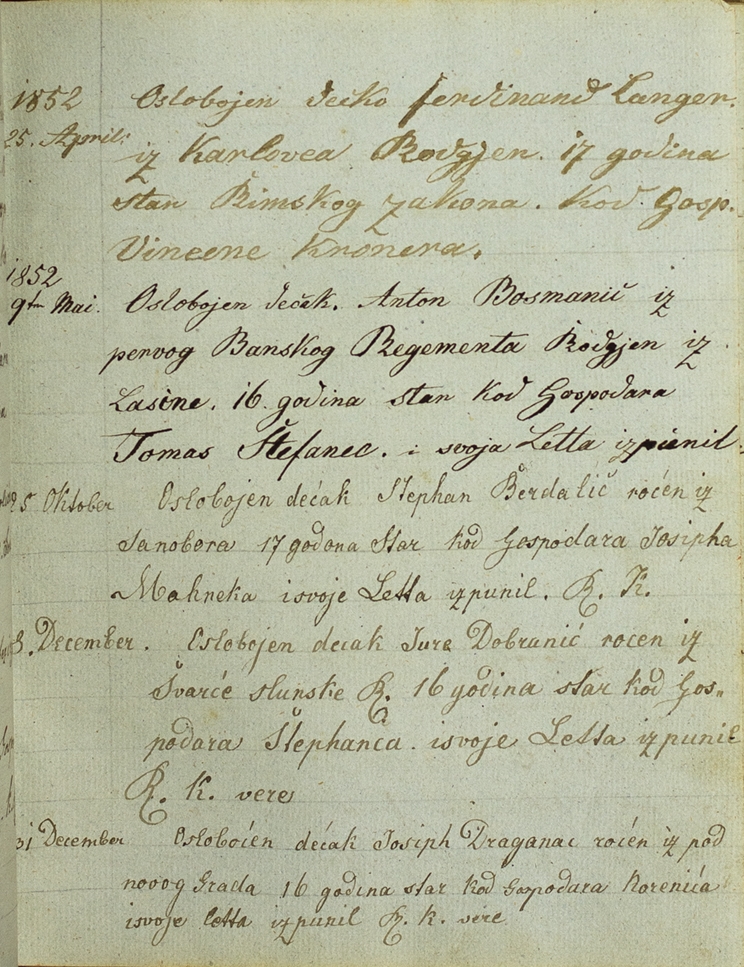 1852 Oslobojen dečko Ferdinand Langer.
25. April: iz Karlovca Rodgjen. 17 godina
star Rimskog zakona. Kod Gosp.
Vincene Kronera.
1852
9ten Mai. Oslobojen dečak. Anton Bosmanič iz
pervog Banskog Regementa Rodgjen iz
Lasine. 16 godina star kod Gospodara
Tomas Štefanec. i svoja Letta izpunil.
25 Oktober Oslobojen dećak Stephan Berdalič roćen iz
Sanobora 17 godona star kod Gospodara Josipha
Mahneka isvoje Letta izpunil. R. K.
3. December. Oslobojen decak Jura Dobranić rocen iz
Švarće slunske R. 16 godina star kod Gos„
podara Štephanca. isvoje Letta izpunil
R. K. vere
31 December Osloboćen dećak Josiph Draganac roćen iz pod
novog Grada 16 godina star kod Gospodara Korenića
isvoje letta izpunil R. K. vere